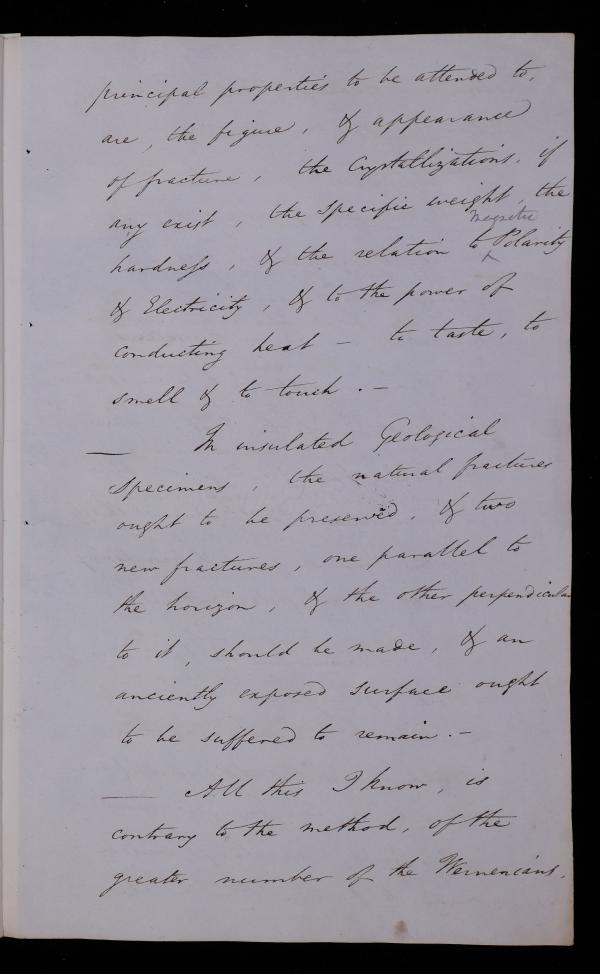 principal properties to be attended to,
are, the figure, & appearance
of fracture, the Crystallizations, if
any exist, the specific weight, the
magnetic
hardness, & the relation to Polarity
& Electricity, & to the power of
conducting heat – to taste, to
smell & to touch. –
— In insulated Geological
specimens, the natural fractures
ought to be preserved, & two
new fractures, one parallel to
the horizon, & the other perpendicular
to it, should be made, & an
anciently exposed surface ought
to be suffered to remain. –
— All this I know, is
contrary to the method, of the
greater number of the Wernerians.